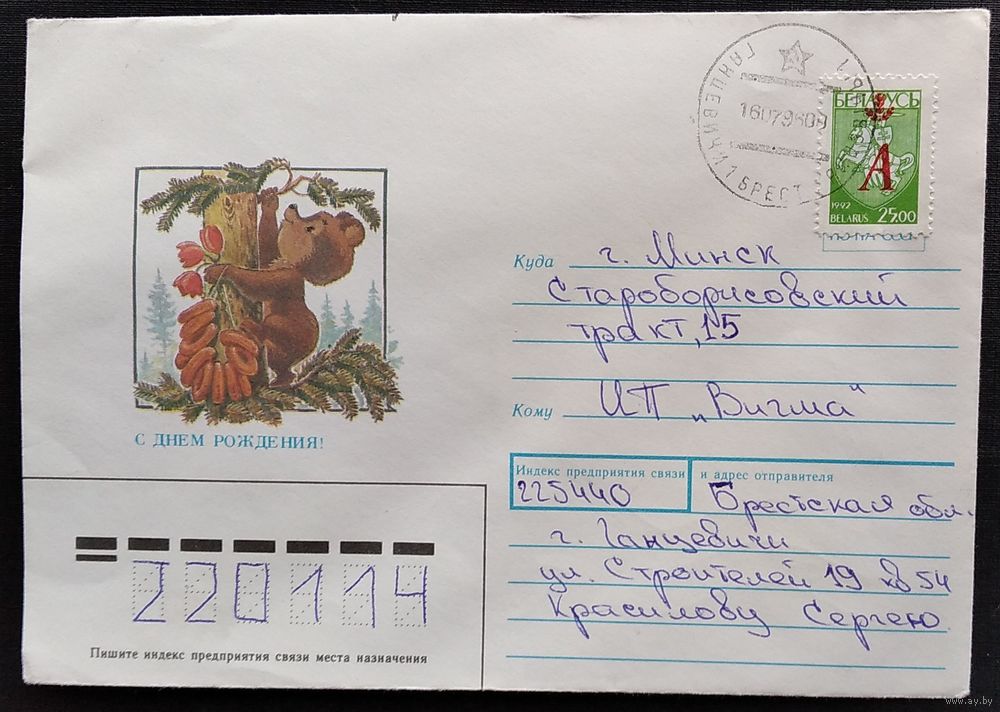 ГАНЦЕВИЧИ 1 БРЕСТ
16079609
БЕЛАРУСЬ
А
1992
BELARUS 25.00
Куда г. Минск
Староборисовский
тракт, 15
Кому ИП „Вигма“
С ДНЕМ РОЖДЕНИЯ!
Индекс предприятия связи и адрес отправителя
225440 Брестская обл.
г. Ганцевичи
ул. Строителей 19 кв 54
Красилову Сергею
220114
Пишите индекс предприятия связи места назначения
www.ay.by